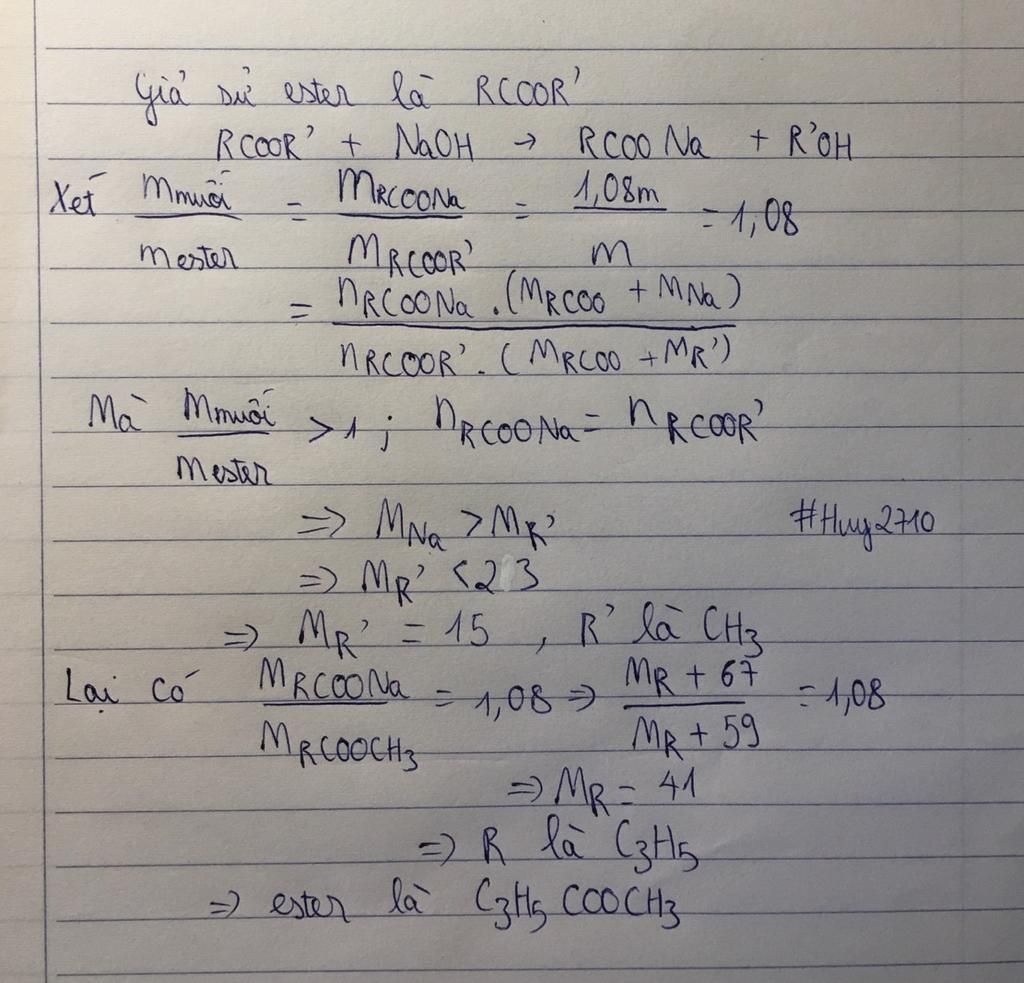 Giả sử ester là RCOOR'
RCOOR' + NaOH → RCOONa + R'OH
Xét mmuối / mester = mRCOONa / mRCOOR' = 1,08m / m = 1,08
= nRCOONa . (MRCOO + MNa) / nRCOOR' . (MRCOO + MR')
Mà mmuối / mester > 1 ; nRCOONa = nRCOOR'
=> MNa > MR'
#Huy2710
=> MR' < 23
=> MR' = 15 , R' là CH3
Lại có MRCOONa / MRCOOCH3 = 1,08 => MR + 67 / MR + 59 = 1,08
=> MR = 41
=> R là C3H5
=> ester là C3H5COOCH3